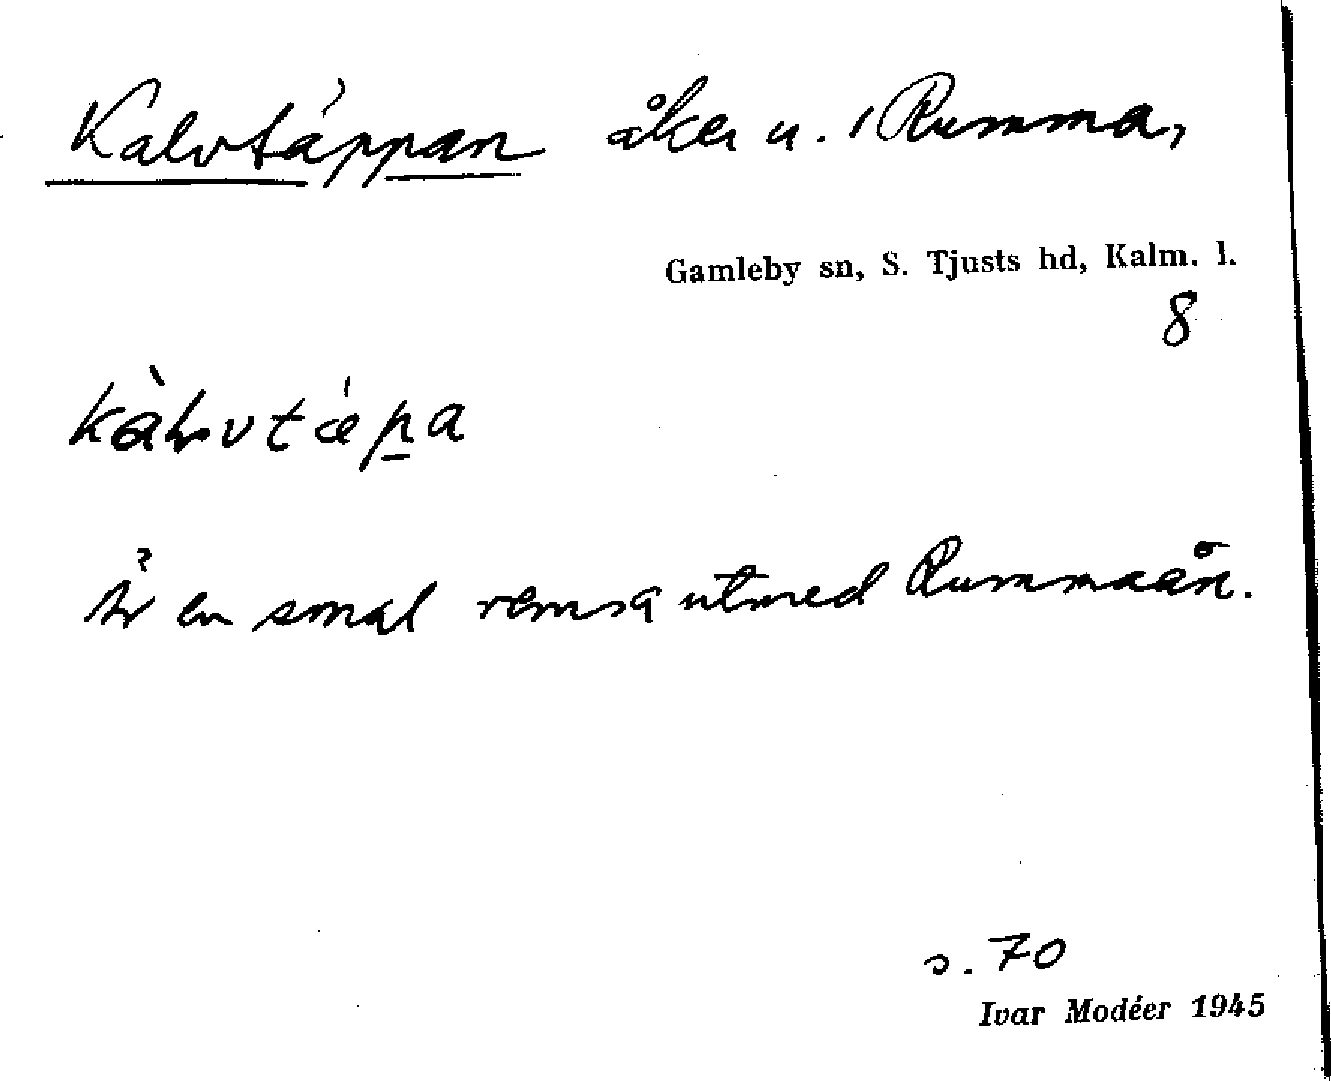 Kalvtäppan åker u. Rumma,
Gamleby sn, S. Tjusts hd, Kalm. l.
8
Är en smal remsa utmed Rummaån.
s. 70
Ivar Modéer 1945